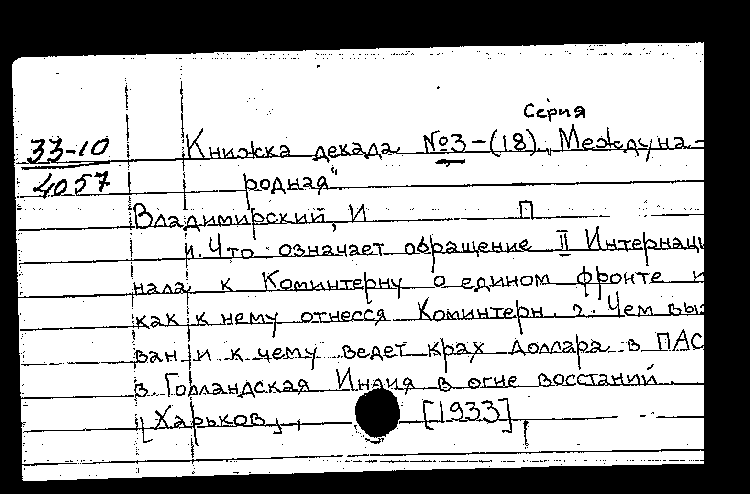 Серия
33-10
Книжка декада №3-(18). "Междуна-
4057
родная".
Владимирский, И П
1. Что означает обращение II Интернаци
нала к Коминтерну о едином фронте и
как к нему отнесся Коминтерн. 2. Чем выз
ван и к чему ведет крах доллара в ПАС
3. Голландская Индия в огне восстаний.
[Харьков], [1933]